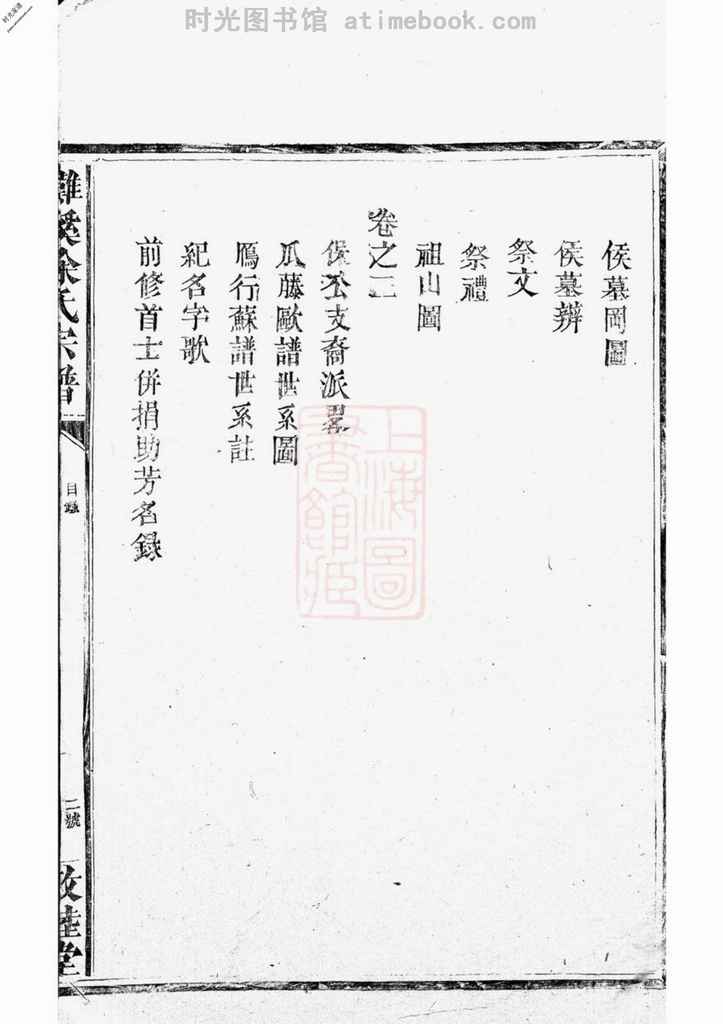 时光图书馆 atimebook.com
侯墓岡圖
侯墓辨
祭文
祭禮
祖山圖
卷之三
侯公支裔派畧
瓜藤歐譜世系圖
鴈行蘇譜世系註
紀名字歌
前修首士併捐助芳名錄
灘溪徐氏宗譜
目錄
二號
敦睦堂
上海圖
書館